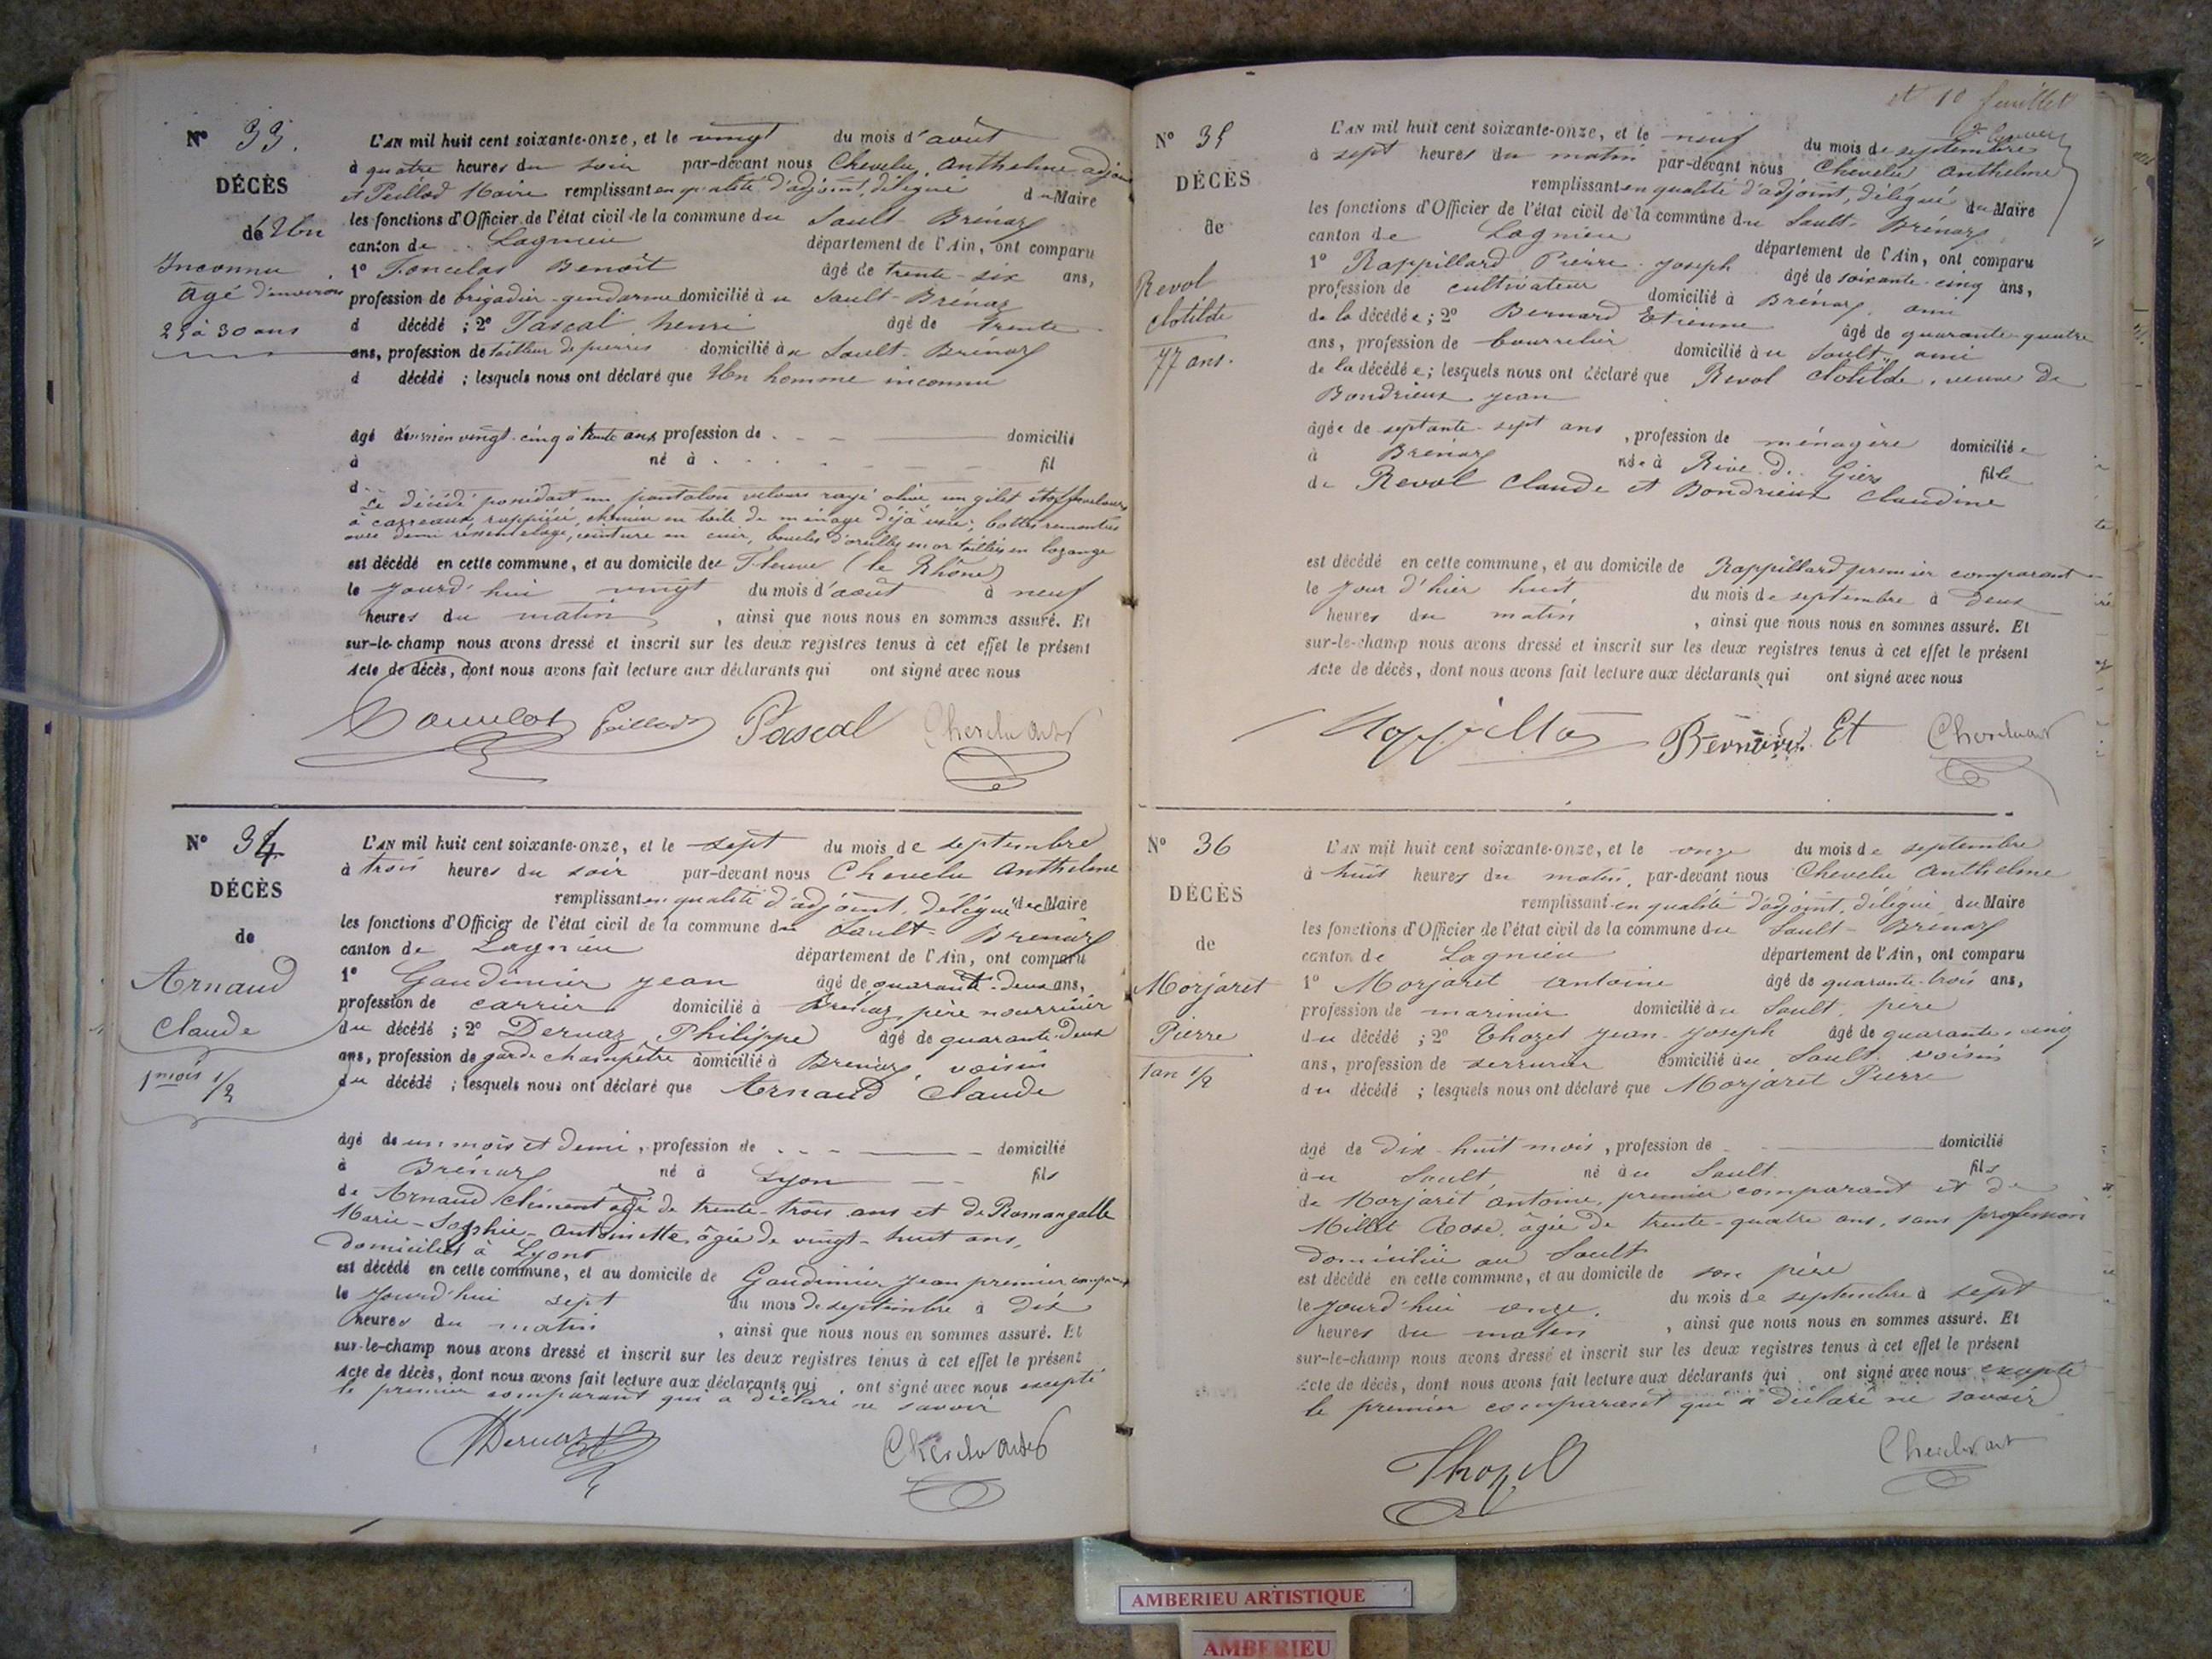 N° 33.
DÉCÈS
de Un
Inconnu
âgé d'environ
25 à 30 ans
L'AN mil huit cent soixante-onze, et le vingt du mois d'août
à quatre heures du soir par-devant nous Chevelu, Anthelme adjoint
et Peillod Maire remplissant en qualité d'adjoint, délégué du Maire
les fonctions d'Officier de l'état civil de la commune du Sault-Brénaz
canton de Lagnieu département de l'Ain, ont comparu
1° Benoît âgé de trente-six ans,
profession de brigadier-gendarme domicilié à u Sault-Brénaz
d décédé ; 2° Pascal henri âgé de trente
ans, profession de tailleur de pierres domicilié à u Sault-Brénaz
d décédé ; lesquels nous ont déclaré que Un homme inconnu
âgé d'environ vingt-cinq à trente ans profession de domicilié
à né à fil
d
Le décédé possédait un pantalon velours rayé olive un gilet étoffe velours
à carreaux rappiécé, chemise en toile de ménage déjà usée; bottes remontées
avec demi ressemelage, ceinture en cuir, boucles d'oreilles en or taillées en lozange
est décédé en cette commune, et au domicile de Fleuve (le Rhône)
le jourd'hui vingt du mois d'août à neuf
heures du matin, ainsi que nous nous en sommes assuré. Et
sur-le-champ nous avons dressé et inscrit sur les deux registres tenus à cet effet le présent
Acte de décès, dont nous avons fait lecture aux déclarants qui ont signé avec nous
Peillod Pascal
N° 34
DÉCÈS
de
Arnaud
Claude
1 mois 1/2
L'AN mil huit cent soixante-onze, et le sept du mois de septembre
à trois heures du soir par-devant nous Chevelu Anthelme
remplissant en qualité d'adjoint, délégué du Maire
les fonctions d'Officier de l'état civil de la commune du Sault-Brénaz
canton de Lagnieu département de l'Ain, ont comparu
1° Gaudinier jean âgé de quarante-deux ans,
profession de carrier domicilié à Brénaz, père nourricier
du décédé ; 2° Dernaz Philippe âgé de quarante-deux
ans, profession de garde champêtre domicilié à Brénaz, voisin
du décédé ; lesquels nous ont déclaré que Arnaud Claude
âgé de un mois et demi, profession de domicilié
à Brénaz né à Lyon fils
de Arnaud Clément âgé de trente-trois ans et de Romangalle
Marie-Sophie-Antoinette, âgée de vingt-huit ans,
domiciliés à Lyon
est décédé en cette commune, et au domicile de Gaudinier jean premier comparant
le jourd'hui sept du mois de septembre à dix
heures du matin, ainsi que nous nous en sommes assuré. Et
sur-le-champ nous avons dressé et inscrit sur les deux registres tenus à cet effet le présent
Acte de décès, dont nous avons fait lecture aux déclarants qui ont signé avec nous excepté
le premier comparant qui a déclaré ne savoir
Dernaz
et 10 feuillet
N° 35
DÉCÈS
de
Revol
Clotilde
77 ans.
L'AN mil huit cent soixante-onze, et le neuf du mois de septembre
à sept heures du matin par-devant nous Chevelu Anthelme
remplissant en qualité d'adjoint, délégué du Maire
les fonctions d'Officier de l'état civil de la commune du Sault-Brénaz
canton de Lagnieu département de l'Ain, ont comparu
1° Rappillard Pierre-Joseph âgé de soixante-cinq ans,
profession de cultivateur domicilié à Brénaz, ami
de la décédée ; 2° Bernard Etienne âgé de quarante-quatre
ans, profession de bourrelier domicilié à u Sault, ami
de la décédée ; lesquels nous ont déclaré que Revol Clotilde, veuve de
Bondrieux jean
âgée de septante-sept ans, profession de ménagère domiciliée
à Brénaz née à Rive-de-Giers fille
de Revol Claude et Bondrieux Claudine
est décédé en cette commune, et au domicile de Rappillard premier comparant
le jour d'hier huit, du mois de septembre à deux
heures du matin, ainsi que nous nous en sommes assuré. Et
sur-le-champ nous avons dressé et inscrit sur les deux registres tenus à cet effet le présent
Acte de décès, dont nous avons fait lecture aux déclarants qui ont signé avec nous
Bernard Et
N° 36
DÉCÈS
de
Morjaret
Pierre
1 an 1/2
L'AN mil huit cent soixante-onze, et le onze du mois de septembre
à huit heures du matin, par-devant nous Chevelu Anthelme
remplissant en qualité d'adjoint, délégué du Maire
les fonctions d'Officier de l'état civil de la commune du Sault-Brénaz
canton de Lagnieu département de l'Ain, ont comparu
1° Morjaret antoine âgé de quarante-trois ans,
profession de marinier domicilié à u Sault, père
du décédé ; 2° Thozet jean-joseph âgé de quarante-cinq
ans, profession de serrurier domicilié à u Sault voisin
du décédé ; lesquels nous ont déclaré que Morjaret Pierre
âgé de dix-huit mois, profession de domicilié
à u Sault, né à u Sault fils
de Morjaret antoine, premier comparant et de
Millet Rose, âgée de trente-quatre ans, sans profession
domiciliée au Sault
est décédé en cette commune, et au domicile de son père
le jourd'hui onze, du mois de septembre à sept
heures du matin, ainsi que nous nous en sommes assuré. Et
sur-le-champ nous avons dressé et inscrit sur les deux registres tenus à cet effet le présent
Acte de décès, dont nous avons fait lecture aux déclarants qui ont signé avec nous excepté
le premier comparant qui a déclaré ne savoir
Thozet
AMBERIEU ARTISTIQUE
AMBERIEU